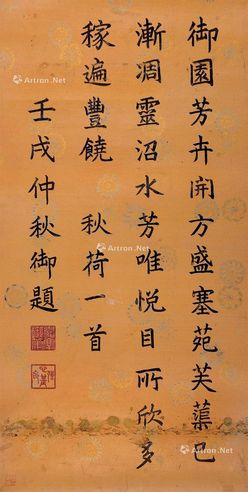 御園芳卉開方盛塞苑芙蕖已
漸凋靈沼水芳唯悅目所欣多
稼遍豐饒　秋荷一首
壬戌仲秋御題
Artron.Net
Artron.Net
Artron.Net
Artron.Net